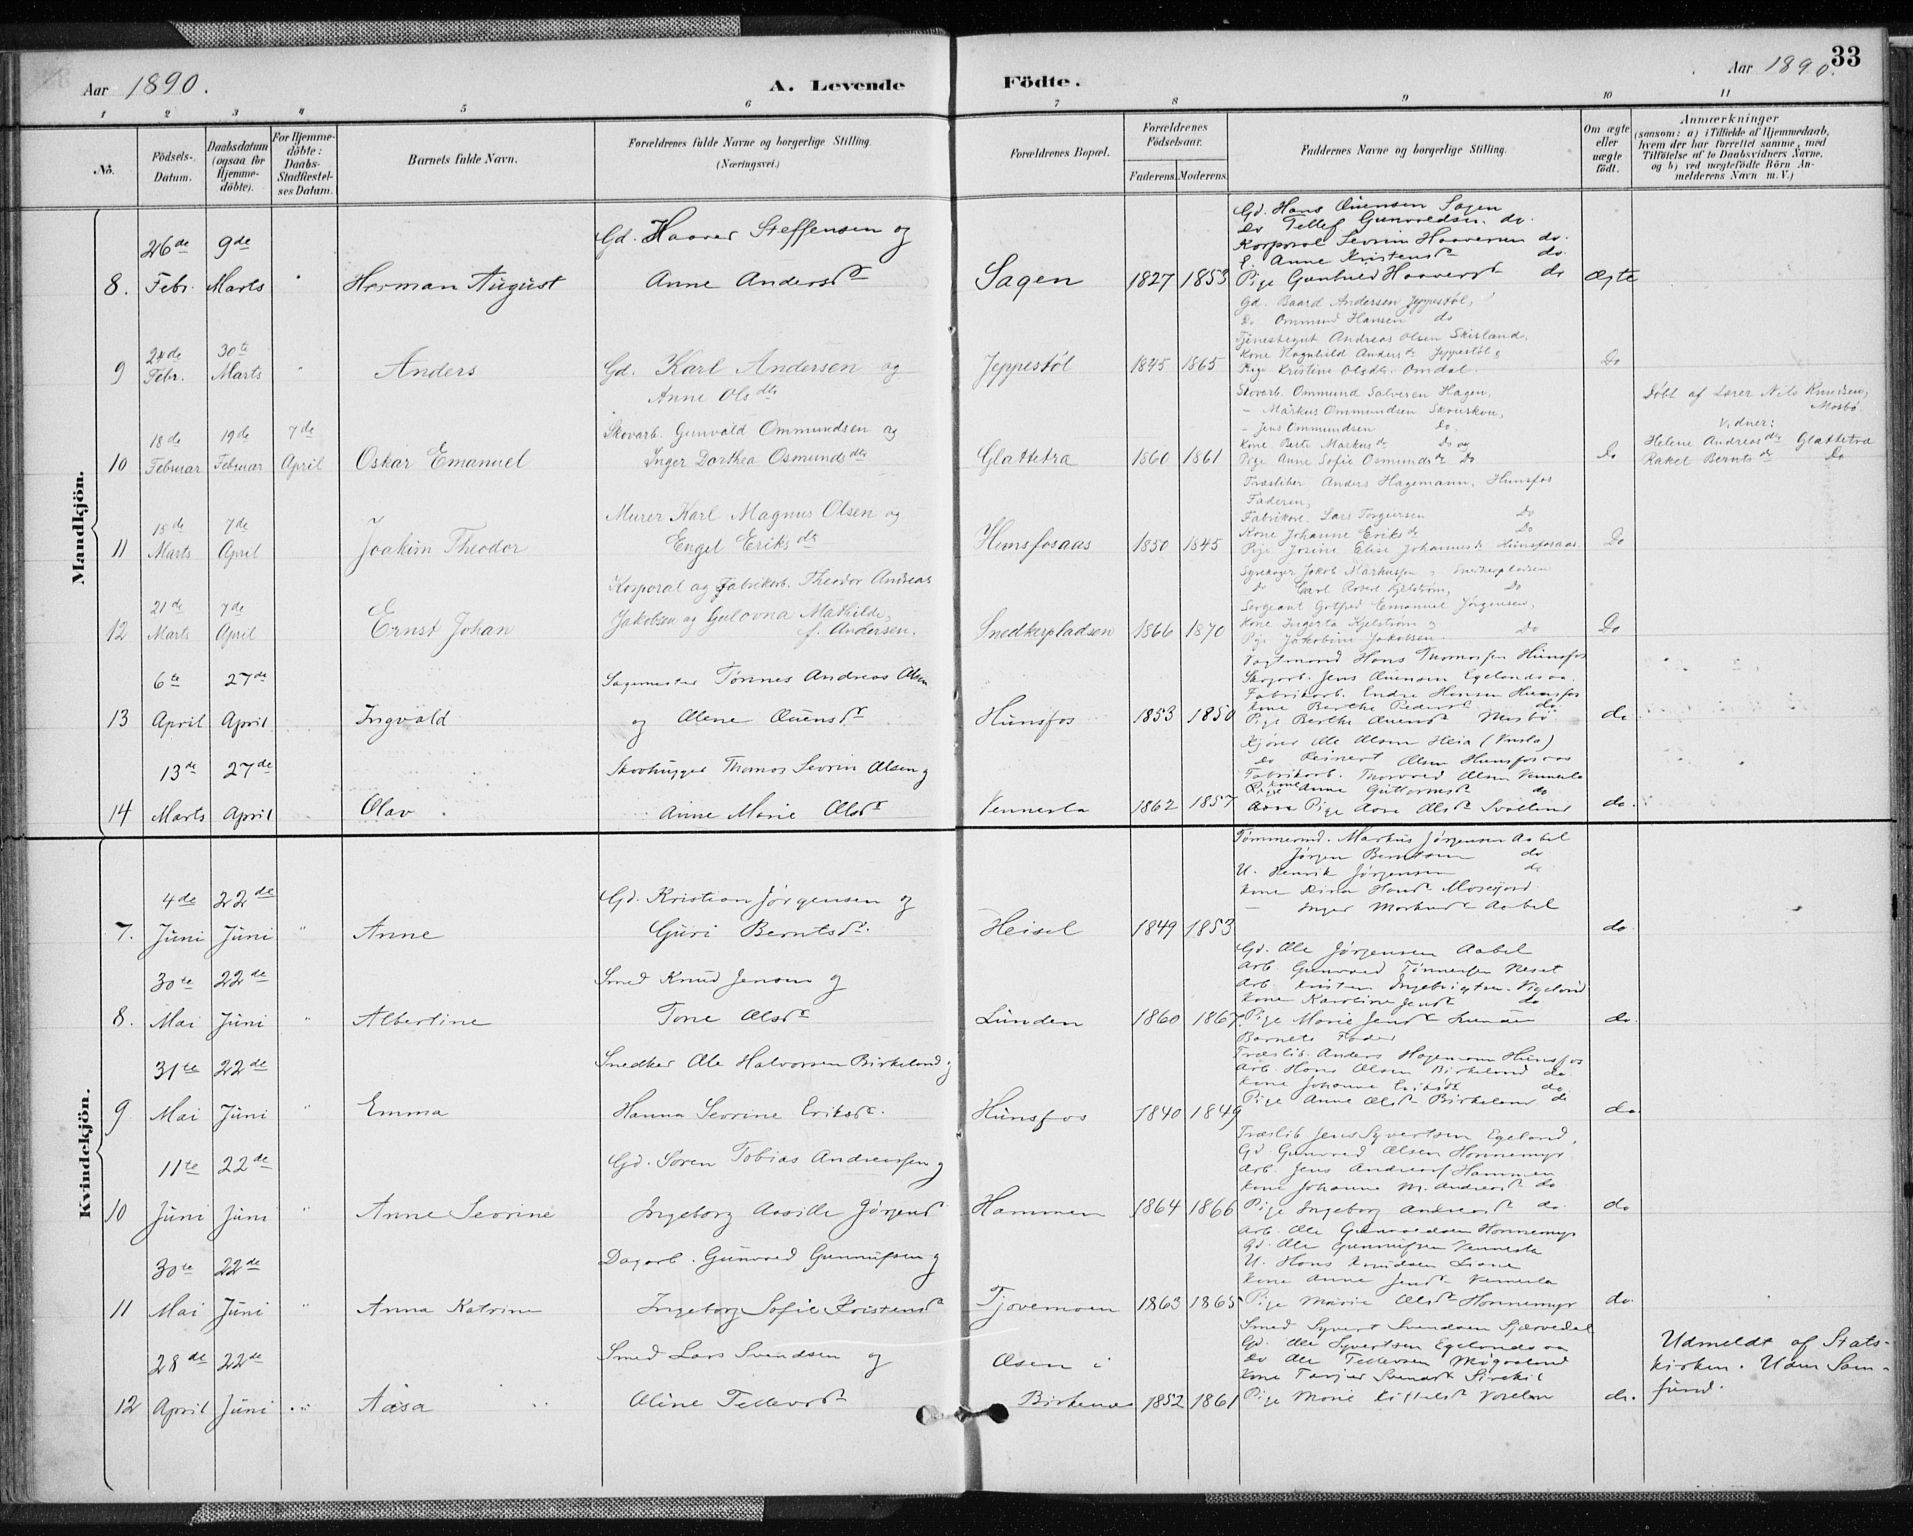 Aar 1890.
A. Levende
Födte.
Aar 1890.
33
1 2 3 4 5 6 7 8 9 10 11
No.
Födsels-Datum.
Daabsdatum (ogsaa for Hjemmedöbte).
For Hjemmedöbte: Daabs-Stadfæstelses Datum.
Barnets fulde Navn.
Forældrenes fulde Navne og borgerlige Stilling. (Næringsvei.)
Forældrenes Bopæl.
Forældrenes Födselsaar.
Faderens. Moderens.
Faddernes Navne og borgerlige Stilling.
Om ægte eller uægte födt.
Anmærkninger
(saasom: a) i Tilfælde af Hjemmedaab, hvem der har forrettet samme, med Tilföielse af to Daabsvidners Navne, og b) ved uægtefödte Börn Anmelderens Navn m. V.)
Mandkjön.
Gd. Hans Suensen Sagen
Do Tellef Gunvaldsen do.
Gd. Haaver Steffensen og
Korporal Sevrin Haaversen do.
26de 9de
Anne Kristensd do.
8. Febr. Marts " Herman August Anne Andersd Sagen 1827 1853 Pige Gunhild Haaversd do ægte
Gd. Baard Andersen Jeppestøl,
Do Ommund Hansen do
Tjenestegut Andreas Olsen Skisland,
24de 30te
Kone Hagnhild Andersdr Jeppestøl,
9 Febr. Marts " Anders Gd. Karl Andersen og Jeppestøl 1845 1865 Pige Kristine Olsdtr. Omdal. Do
Anne Olsdtr
Skovarb. Ommund Salvesen Hagen,
- Markus Ommundsen Skouskou,
- Jens Ommundsen do.
Døbt af Lærer Nils Knudsen, Mosbø
Vidner:
Skovarb. Gunvald Ommundsen og
18de 19de 7de
Kone Berte Markusdr Do og
Helene Andreasdtr Glattetra
10 Februar Februar April Oskar Emanuel Inger Dorthea Osmundsdtr Glattetra 1860 1861 Pige Anne Sofie Osmundsdr Do Do Rakel Berntsdr Do
Træsliber Anders Hagemann, Hunsfos
Faderen,
Murer Karl Magnus Olsen og
Fabrikarb. Lars Torgersen Do
18de 7de
Kone Johanne Eriksdr Do
11 Marts April Joakim Theodor Engel Eriksdtr Hunsfosaas 1850 1845 Pige Josine Elise Johannesdr Hunsfosaas. Do
Jakob Markussen, Snedkerpladsen
Korporal og Fabrikarb. Theodor Andreas
Do Carl Robert Kjelstrøm, Do
21de 7de
Sergeant Gotfred Emanuel Jørgensen,
Jakobsen og Gulovna Mathilde,
Kone Ingerta Kjelstrøm og
12 Marts April Ernst Johan f. Andersen. Snedkerpladsen 1866 1870 Pige Jakobine Jakobsen. Do Do
Vagtmand Hans Thomassen Hunsfos
6te 27de
Sagemester Tønnes Andreas Olsen
Jens Suensen Egelandsaa.
Fabrikarb. Endre Hansen Hunsfos
Kone Berthe Pedersd do.
13 April April Ingvald og Olene Suensdr Hunsfos 1853 1850 Pige Berthe Suensdr Mosbø do.
Kjører Ole Olsen Heia (Vensla)
13de 27de
Skovhugger Thomas Sevrin Olsen og
Do Reinert Olsen Hunsfosaas
Fabrikarb. Thorvald Olsen Vennesla
Kone Anne Guttormsd do
14 Marts April Olav Anne Marie Olsdr Vennesla 1862 1857 Pige Aase Olsdr do.
Kvindekjön.
Tømmermd. Markus Jørgensen Aabel
Jørgen Berntsen do
U. Henrik Jørgensen do
4de 22de
Gd. Kristian Jørgensen og
Kone Dina Hansdr Mosejord.
- Inger Markusdr Aabel
7. Juni Juni " Anne Guri Berntsdr. Heisel 1849 1853 do.
Gd. Ole Jørgensen Aabel
30te 22de
Smed Knud Jensen og
Arb. Gunvald Tønnesen Neset
Arb. Kristen Ingebrigtsen Vigeland
Kone Karoline Jensdr do
8. Mai Juni " Albertine Tone Olsdr Lunden 1860 1867 Pige Marie Jensdr Lunden do.
Barnets Fader
31te 22de
Snedker Ole Halvorsen Birkeland og
Træslib. Anders Hagemann Hunsfos
Arb. Hans Olsen Birkeland do.
Kone Johanne Eriksdr do.
9 Mai Juni " Emma Hanna Sevrine Eriksdr. Hunsfos 1840 1849 Pige Anne Olsdr Birkeland do do.
Træslib. Jens Syvertsen Egeland.
11te 22de
Gd. Søren Tobias Andreassen og
Gd. Gunvald Olsen Honnemyr
Arb. Jens Andreass Hammen
Kone Johanne M. Andreasdr do
10 Juni Juni " Anne Sevrine Ingeborg Aasille Jørgensd Hammen 1864 1866 Pige Ingeborg Andreasdr do. do
Arb. Ole Gunvaldsen Honnemyr
30te 22de
Dagarb. Gunvald Gunnufsen og
Gd. Ole Gunnufsen Vennesla
U. Hans Knudsen Liane
Kone Anne Jensdr Vennesla
11 Mai Juni " Anna Katrine Ingeborg Sofie Kristensdr Tjovemoen 1863 1865 Pige Marie Olsdr Honnemyr do.
Smed Syvert Svendsen
28de 22de
Smed Lars Svendsen og
Gd. Ole Syvertsen Egelandsaa
Do Ole Tellevsen
Kone Svendsdr
Udmeldt af Stats-
kirken. Uden Sam-
fund.
12 April Juni " Aasa Oline Tellevsdr Øsen i Birkenes 1852 1861 Pige Marie do.